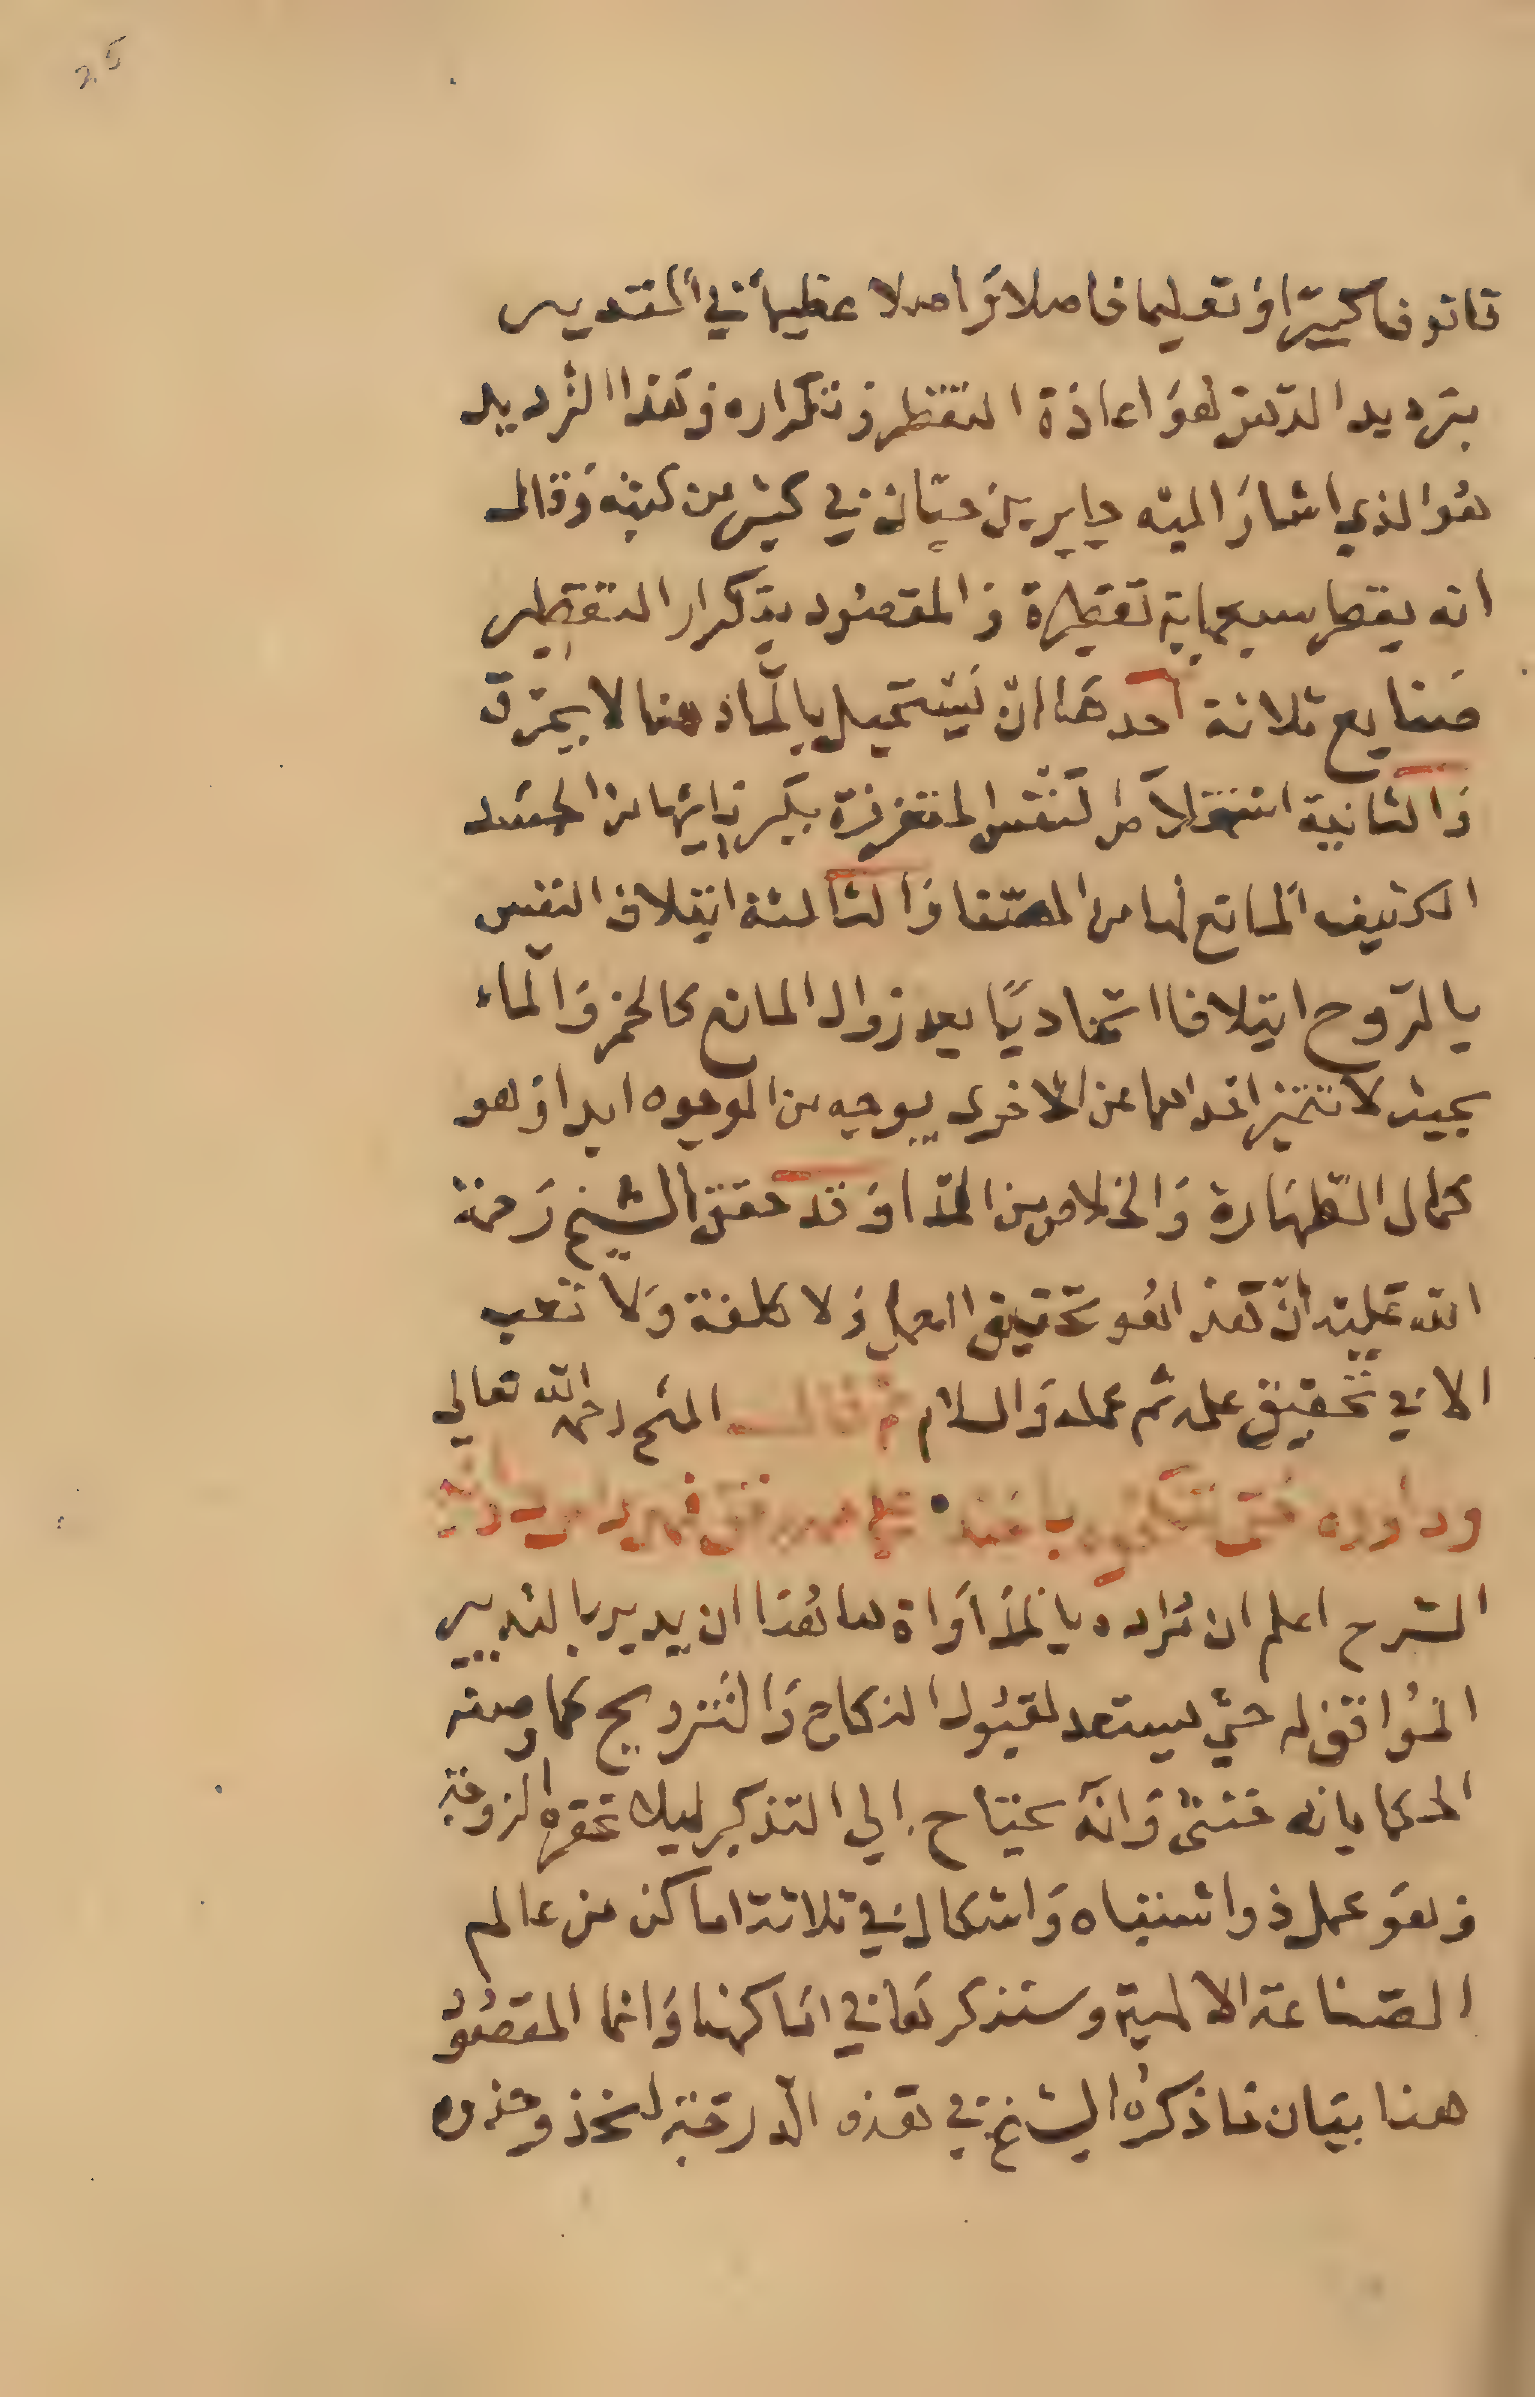 25
قانونا كبيرا وتعليما فاصلا واصلا عظيما في التدبير
بترديد الدهن هو اعادة التقطير وتكراره وهذا الترديد
هو الذي اشار اليه جابر بن حيان في كثير من كتبه وقال
انه يقطر سبعماية تقطيرة والمقصود بتكرار التقطير
صنايع ثلاثة احدها ان يستحيل بالماد هنا لا يحترق
والثانية استخلاص النفس المتغرزة بكبريايتها من الجسد
الكثيف المانع لها من الصفا والثالثة ايتلاف النفس
بالروح ايتلافا اتحاديا بعد زوال المانع كالخمر والماء
بحيث لا تتميز احداهما عن الاخرى بوجه من الوجوه ابدا وهو
كمال الطهارة والخلاص من الدا وقد حقق الشيخ رحمة
الله عليه ان هذا هو تحقيق العمل ولا كلفة ولا تعب
الا في تحقيق علمه ثم عمله والسلام ثم قال الشيخ رحمه الله تعالي
وداوره حتى
الشرح اعلم ان مراده بالمداواة هاهنا ان يدبر بالتدبير
الموافق له حتي يستعد لقبول النكاح والتزويج كما وصفه
الحكما بانه خنثى وانه يحتاج الي التذكير ليلا تحقره الزوجة
وهو عمل ذو اشتباه واشكال في ثلاثة اماكن من عالم
الصناعة الالهية وسنذكرها في اماكنها وانما المقصود
هنا بيان ما ذكره الشيخ في هذه الدرجة لتخذ وحذوه